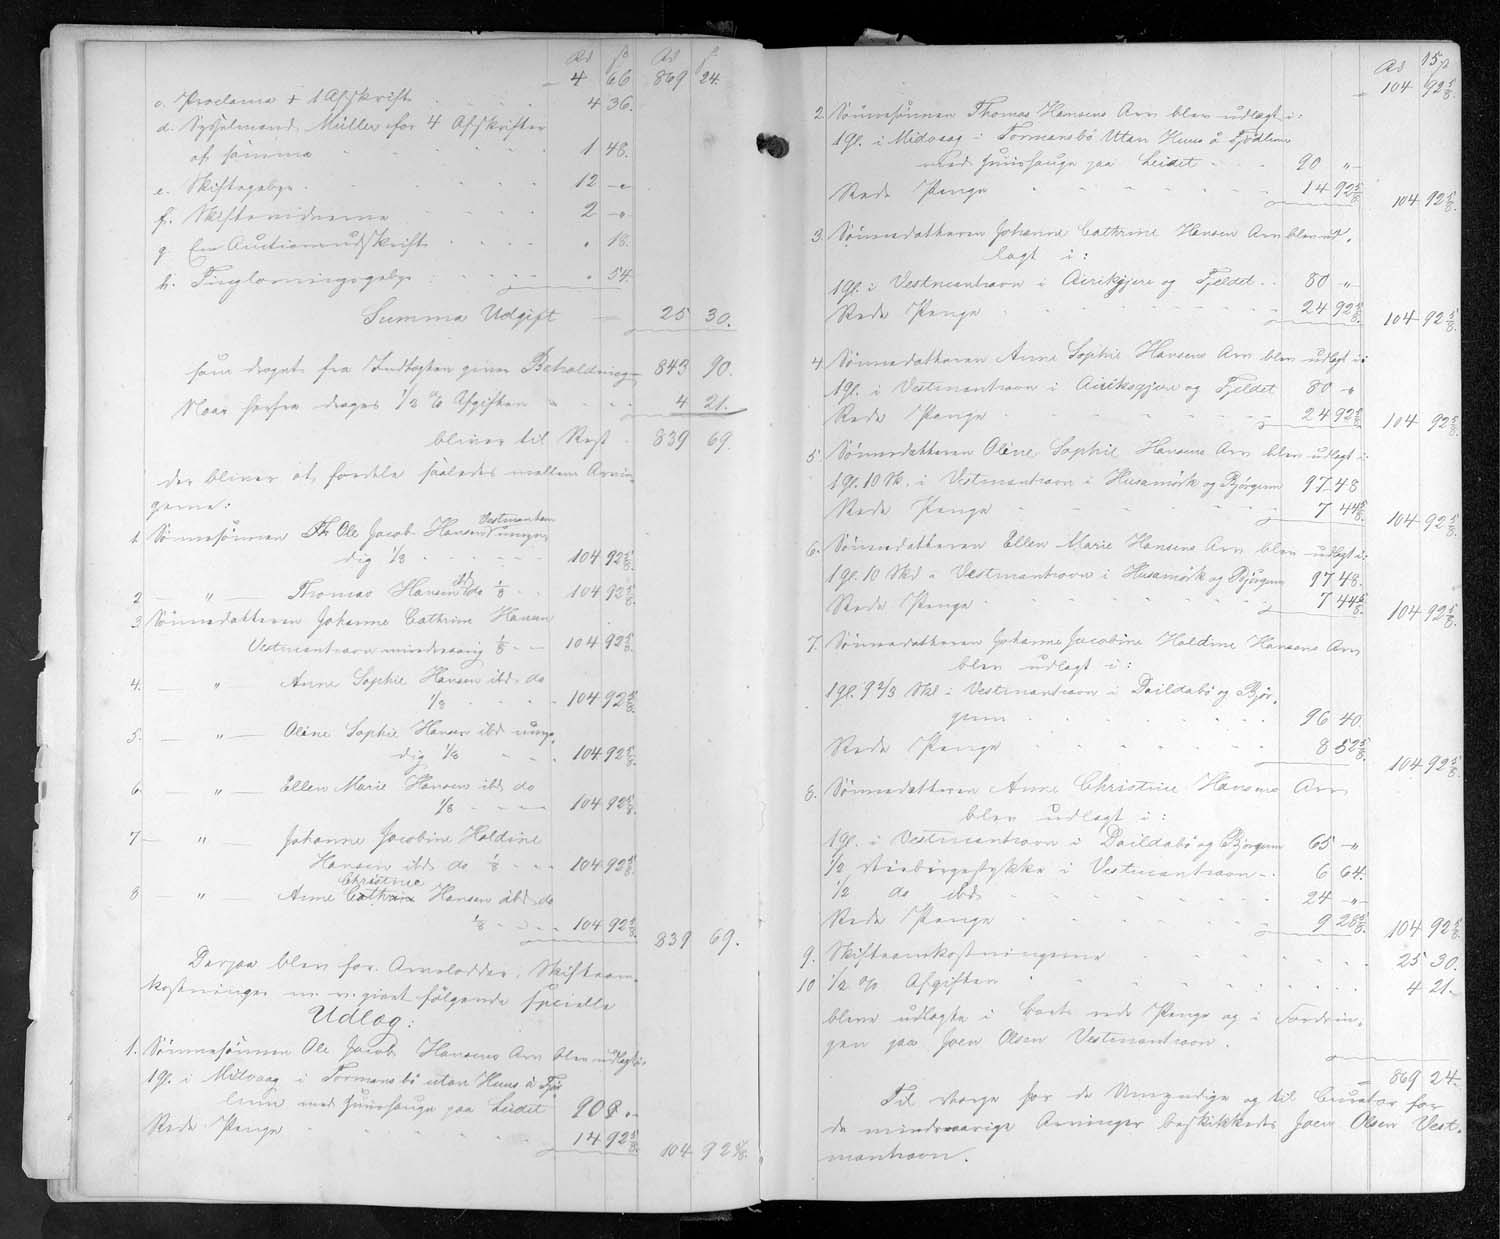 Rd ß Rd ß
4 66 869 24.
c. Proclama + 1 Afskrift 4 36.
d. Sysselmand Müller for 4 Afskrifter
af samma 1 48.
e. Skiftegebyr 12 -"-
f. Skiftevidnerne 2 -"-
g. En Auctionsudskrift " 18.
h. Tinglæsningsgebyr " 54.
Summa Udgift 25 30.
som draget fra Indtægten giver Beholdning 843 90.
Naar herfra drages 1/2 % Afgiften 4 21.
bliver til Rest 839 69.
der bliver at fordele saaledes mellem Arvin-
gerne:
1. Sønnesønnen Ole Jacob Hansen Vestmanhavn umyn-
dig 1/8 104 92 5/8.
2 — " — Thomas Hansen ibd do 1/8 104 92 5/8
3 Sønnedatteren Johanne Cathrine Hansen
Vestmanhavn mindreaarig 1/8 104 92 5/8.
4. — " — Anne Sophie Hansen ibd do
1/8 104 92 5/8.
5. — " — Olene Sophie Hansen ibd umyn-
dig 1/8 104 92 5/8.
6. — " — Ellen Marie Hansen ibd do
1/8 104 92 5/8.
7 — " — Johanne Jacobine Holdine
Hansen ibd do 1/8 104 92 5/8
Christine
8 — " — Anne Cathrine Hansen ibd do
1/8 104 92 5/8. 839 69.
Derpaa blev for Arvelodder, Skifteom-
kostninger m. v. givet følgende specielle
Udlæg:
1. Sønnesønnen Ole Jacob Hansens Arv blev udlagt i:
1 Gl. i Midvaag i Tormansbø utan Huus å Fjød-
lum med Huushauge paa Leidet 90 "-
Rede Penge 14 92 5/8. 104 92 5/8.
15
Rd ß
104 92 5/8.
2 Sønnesønnen Thomas Hansens Arv blev udlagt i:
1 Gl. i Midvaag i Tormansbø Utan Huus å Fjødlum
med Huushauge paa Leidet 90 "-
Rede Penge 14 92 5/8 104 92 5/8.
3. Sønnedatteren Johanne Cathrine Hansen Arv blev ud-
lagt i:
1 Gl. i Vestmanhavn i Airikgjere og Fjeldet 80 "-
Rede Penge 24 92 5/8. 104 92 5/8.
4. Sønnedatteren Anne Sophie Hansens Arv blev udlagt i:
1 Gl. i Vestmanhavn i Airiksgjere og Fjeldet 80 "
Rede Penge 24 92 5/8 104 92 5/8.
5 Sønnedatteren Olene Sophie Hansens Arv blev udlagt i:
1 Gl. 10 Sk. i Vestmanhavn i Husamørk og Bjørgum 97 48
Rede Penge 7 44 5/8. 104 92 5/8
6. Sønnedatteren Ellen Marie Hansens Arv blev udlagt i:
1 Gl. 10 Skd i Vestmanhavn i Husamørk og Bjørgum 97 48.
Rede Penge 7 44 5/8. 104 92 5/8.
7. Sønnedatteren Johanne Jacobine Holdine Hansens Arv
blev udlagt i:
1 Gl. 9 2/3 Skl i Vestmanhavn i Daildabø og Bjør-
gum 96 40.
Rede Penge 8 52 5/8 104 92 5/8.
8. Sønnedatteren Anne Christine Hansens Arv
blev udlagt i:
1 Gl. i Vestmanhavn i Daildabø og Bjørgum 65 "
1/2 i Vestmanhavn 6 64.
1/2 do ibd 24 -"-
Rede Penge 9 28 5/8. 104 92 5/8.
9. Skifteomkostningerne 25 30.
10 1/2 % Afgiften 4 21.
bleve udlagte i Boets rede Penge og i Fordrin-
gen paa Joen Olsen Vestmanhavn.
869 24.
Til Værge for de Umyndige og til Curator for
de mindreaarige Arvinger beskikkedes Joen Olsen Vest-
manhavn.